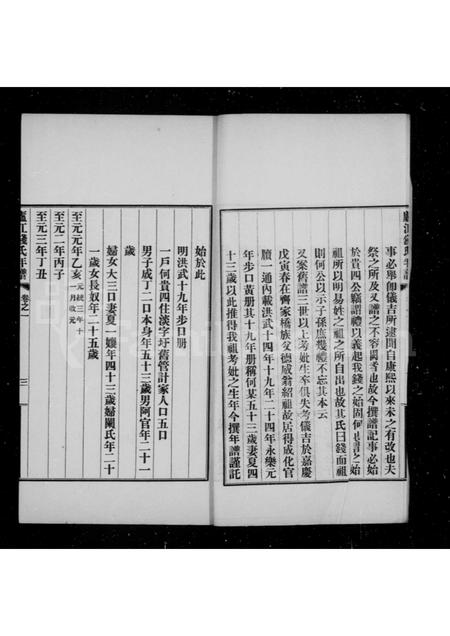 事必舉卽儀吉所逮聞自康熙以來未之有改也夫
祭之所及又譜之不容闕者也故今撰譜記事必始
於貴四公竊謂禮以義起我錢之始固何也書之始
祖所以明易姓之祖之所自出也故其氏曰錢而祖
則何公以示子孫庶幾禮不忘其本云
又案舊譜三世以上考妣生卒俱失考儀吉於嘉慶
戊寅春在齊家橋族父德威翁紹祖故居得成化官
牘一通內載洪武十四年十九年二十四年永樂元
年步口黃册其十九年册稱何某五十三歲妻夏四
十三歲以此推得我祖考妣之生年今撰年譜謹託
始於此
明洪武十九年步口册
一戶何貴四住漢字圩舊管計家人口五口
男子成丁二口本身年五十三歲男阿官年二十一
歲
婦女大三口妻夏一孃年四十三歲婦闕氏年二十
一歲女長奴年二十五歲
至元元年乙亥元統三年十一月改元
至元二年丙子
至元三年丁丑
廬江錢氏年譜 卷之一 三
廬江錢氏年譜